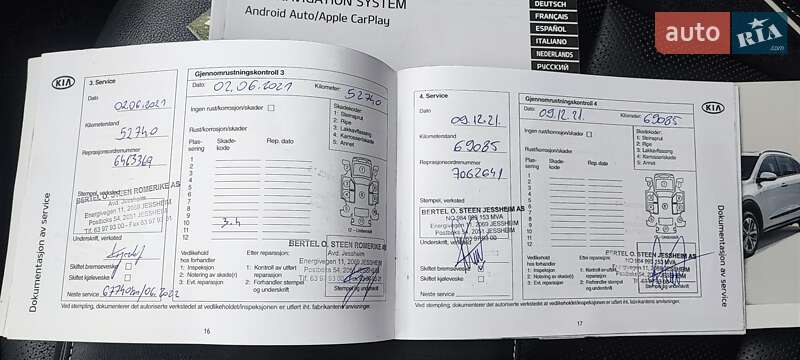 NAVIGATION SYSTEM
Android Auto/Apple CarPlay
DEUTSCH
FRANÇAIS
ESPAÑOL
ITALIANO
NEDERLANDS
РУССКИЙ
auto RIA.com
KIA
3. Service
Dato
02.06.2021
Kilometerstand
52740
Reprasjonsordrenummer
6463349
Stempel, verksted
BERTEL O. STEEN ROMERIKE AS
Avd. Jessheim
Energivegen 11, 2069 JESSHEIM
Postboks 54, 2051 JESSHEIM
Underskrift, verksted
Skiftet bremsevæske
Skiftet kjølevæske
Neste service
Dokumentasjon av service
Gjennomrustningskontroll 3
Dato: 02.06.2021
Kilometer: 52740
Ingen rust/korrosjon/skader
Rust/korrosjon/skader
Plassering
Skadekode
Rep. dato
1
2
3
4
5
6
7
8
9
10
11
12
Skadekoder:
1: Steinsprut
2: Ripe
3: Lakkavflassing
4: Karosseriskade
5: Annet
12 - Underside
BERTEL O. STEEN ROMERIKE AS
Avd. Jessheim
Energivegen 11, 2069 JESSHEIM
Postboks 54, 2051 JESSHEIM
Vedlikehold hos forhandler
1: Inspeksjon
2: Notering av skade(r)
3: Evt. reparasjon
Etter reparasjon:
1: Kontroll av utført reparasjon
2: Forhandler stempel og underskrift
Stempel og underskrift
Ved stempling, dokumenterer det autoriserte verkstedet at vedlikeholdet/inspeksjonen er utført iht. fabrikantens anvisninger.
16
4. Service
Dato
09.12.21.
Kilometerstand
69085
Reprasjonsordrenummer
7062641
Stempel, verksted
BERTEL O. STEEN JESSHEIM AS
NO 984 993 153 MVA
Energivegen 11, 2069 JESSHEIM
Postboks 54, 2051 JESSHEIM
Underskrift, verksted
Skiftet bremsevæske
Skiftet kjølevæske
Neste service
Gjennomrustningskontroll 4
Dato: 09.12.21.
Kilometer: 69085
Ingen rust/korrosjon/skader
Rust/korrosjon/skader
Plassering
Skadekode
Rep. dato
1
2
3
4
5
6
7
8
9
10
11
12
Skadekoder:
1: Steinsprut
2: Ripe
3: Lakkavflassing
4: Karosseriskade
5: Annet
12 - Underside
BERTEL O. STEEN JESSHEIM AS
NO 984 993 153 MVA
Vedlikehold hos forhandler:
1: Inspeksjon
2: Notering av skade(r)
3: Evt. reparasjon
Etter reparasjon:
1: Kontroll av utført reparasjon
2: Forhandler stempel og underskrift
Stempel og underskrift
Ved stempling, dokumenterer det autoriserte verkstedet at vedlikeholdet/inspeksjonen er utført iht. fabrikantens anvisninger.
17
KIA
Dokumentasjon av service